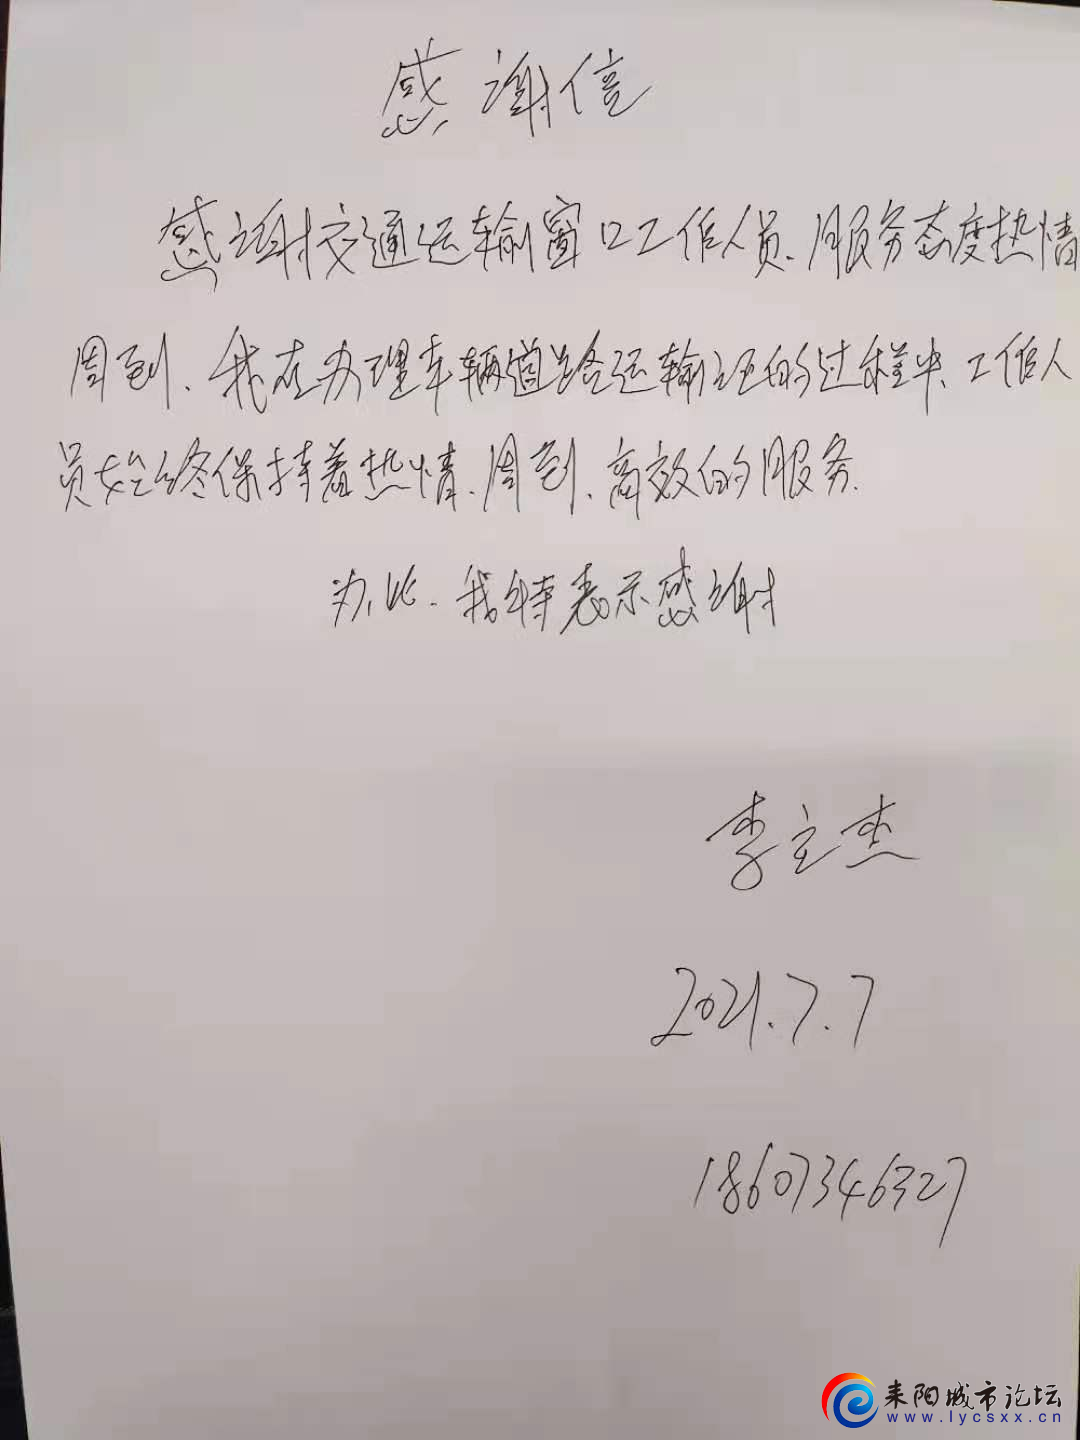 感谢信
感谢交通运输窗口工作人员、服务态度热情
周到、我在办理车辆道路运输证的过程中、工作人
员始终保持着热情、周到、高效的服务.
为此.我特表示感谢
李立杰
2021.7.7
18607346327
耒阳城市论坛
www.lycsxx.cn